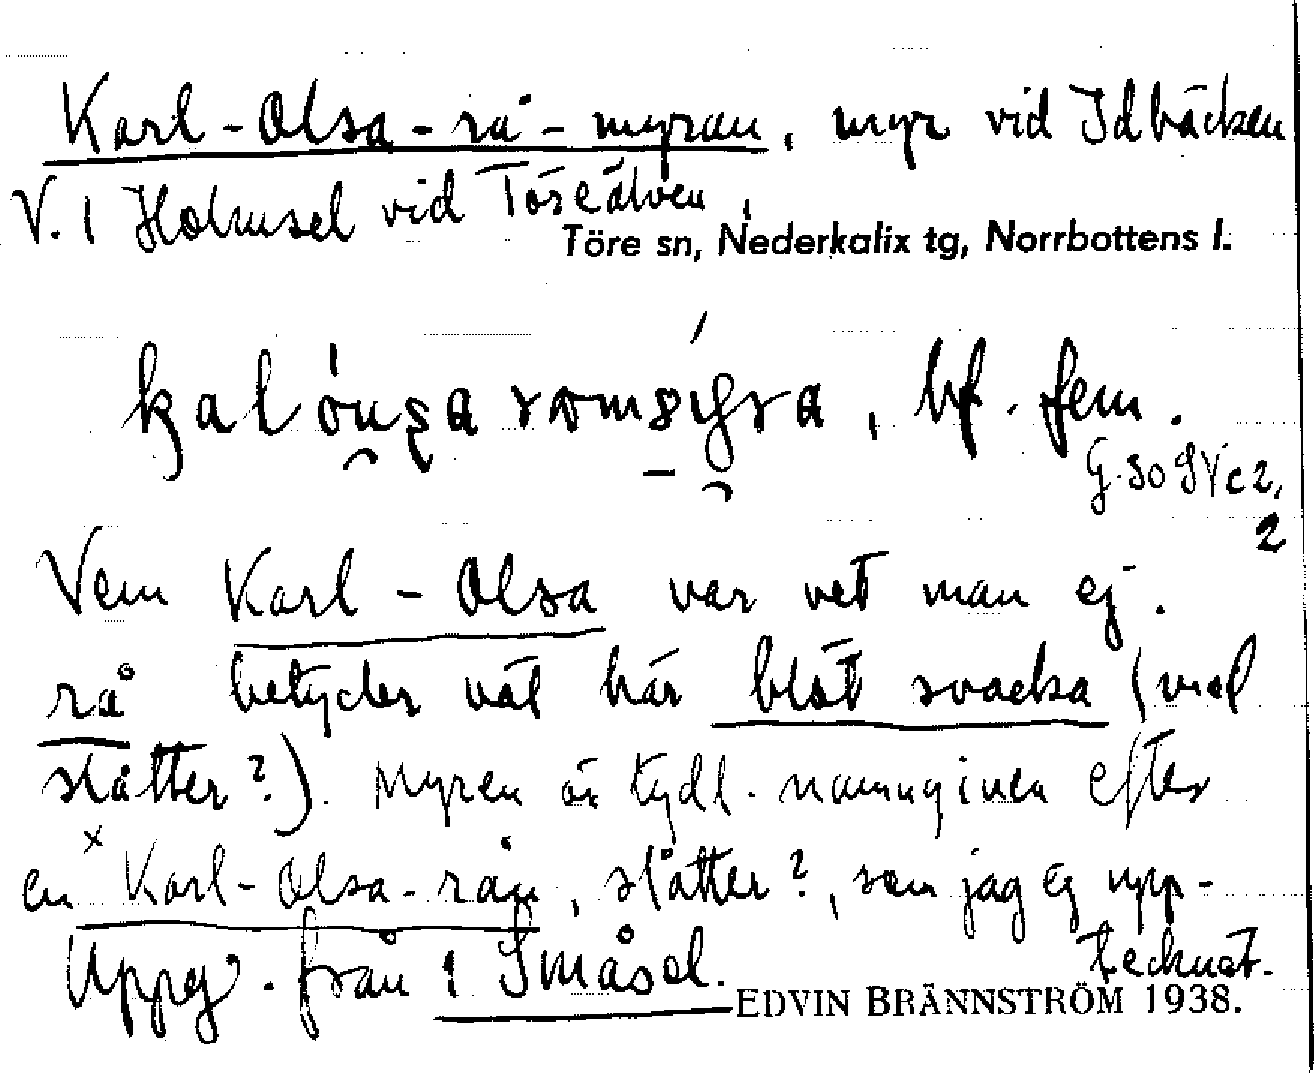 Karl-Olsa-rå-myran, myr vid Idbäcken
V. 1 Holmsel vid Töreälven,
Töre sn, Nederkalix tg, Norrbottens l.
bf. fem.
2
Vem Karl-Olsa var vet man ej.
rå betyder väl här blöt svacka (med
slåtter?). Myren är tydl. namngiven efter
en x Karl-Olsa-rån, slåtter?, som jag ej upp-
tecknat.
Uppg. från 1 Småsel.
EDVIN BRÄNNSTRÖM 1938.